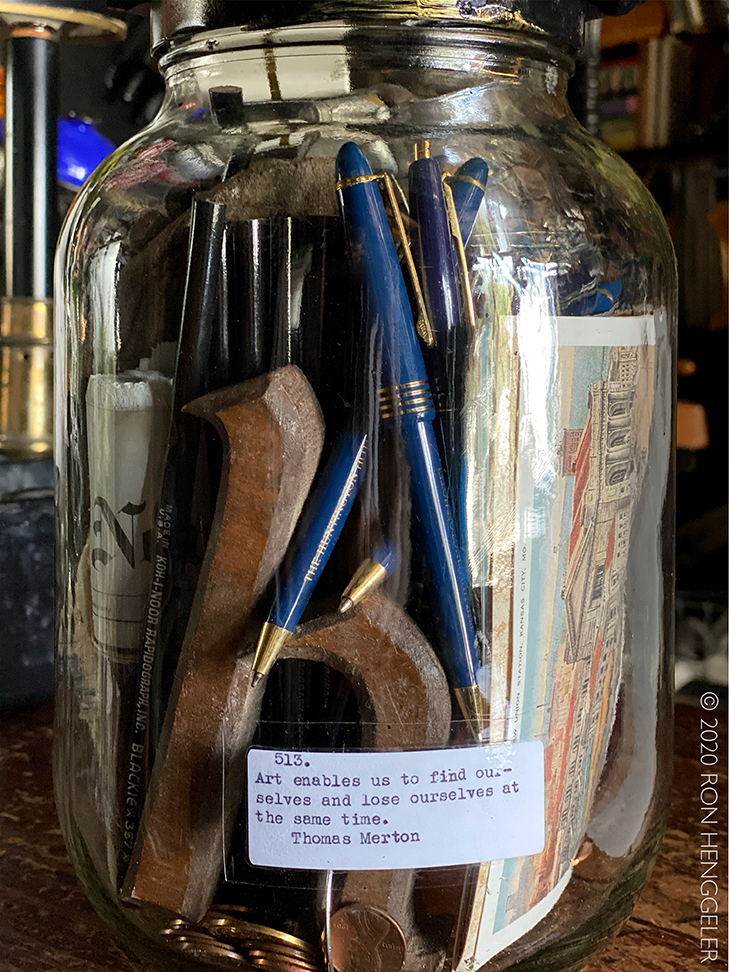 THE HUNTINGTON
KOH-I-NOOR RAPIDOGRAPH, INC.
BLACKIE
UNION STATION, KANSAS CITY, MO.
513.
Art enables us to find our-
selves and lose ourselves at
the same time.
Thomas Merton
© 2020 RON HENGGELER